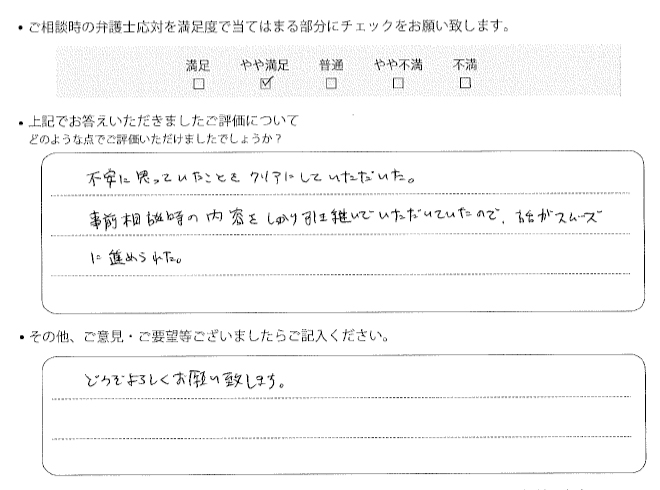 ・ご相談時の弁護士応対を満足度で当てはまる部分にチェックをお願い致します。
満足 やや満足 普通 やや不満 不満
□ ☑ □ □ □
・上記でお答えいただきましたご評価について
どのような点でご評価いただけましたでしょうか？
不安に思っていたことをクリアにしていただいた。
事前相談時の内容をしっかり引き継いでいただいていたので、話がスムーズ
に進められた。
・その他、ご意見・ご要望等ございましたらご記入ください。
どうぞよろしくお願い致します。